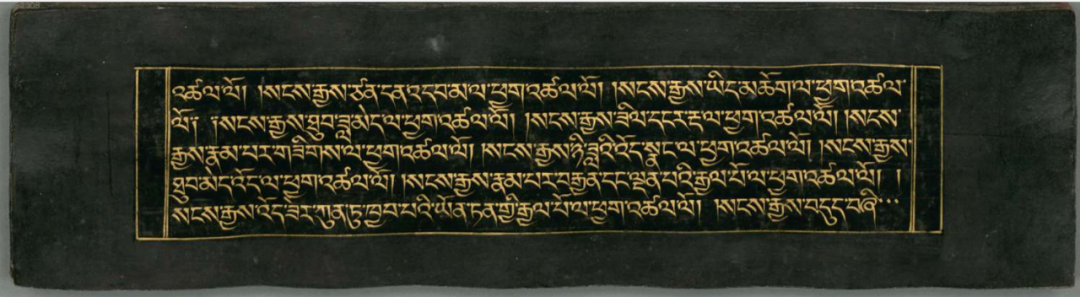 འཚལ་ལོ། །སངས་རྒྱས་ཙན་དན་འདབ་མ་ལ་ཕྱག་འཚལ་ལོ། །སངས་རྒྱས་ཡིད་མཆོག་ལ་ཕྱག་འཚལ་
ལོ༔ ༔སངས་རྒྱས་ཐུབ་ཟླ་མེད་ལ་ཕྱག་འཚལ་ལོ། །སངས་རྒྱས་ཟིལ་དངར་རྡལ་ཕྱག་འཚལ་ལོ། །སངས་
རྒྱས་རྣམ་པར་གཟིགས་ལ་ཕྱག་འཚལ་ལོ། །སངས་རྒྱས་ཉི་ཟླའི་འོད་སྣང་ལ་ཕྱག་འཚལ་ལོ། །སངས་རྒྱས་
ཐུབ་མེད་འོད་ལ་ཕྱག་འཚལ་ལོ། །སངས་རྒྱས་རྣམ་པར་བརྒྱན་དང་ལྡན་པའི་རྒྱལ་པོ་ལ་ཕྱག་འཚལ་ལོ། །
སངས་རྒྱས་འོད་ཟེར་ཀུན་ཏུ་ཁྱབ་པའི་ཡོན་ཏན་གྱི་རྒྱལ་པོ་ལ་ཕྱག་འཚལ་ལོ། །སངས་རྒྱས་བདུད་བཞི་་་